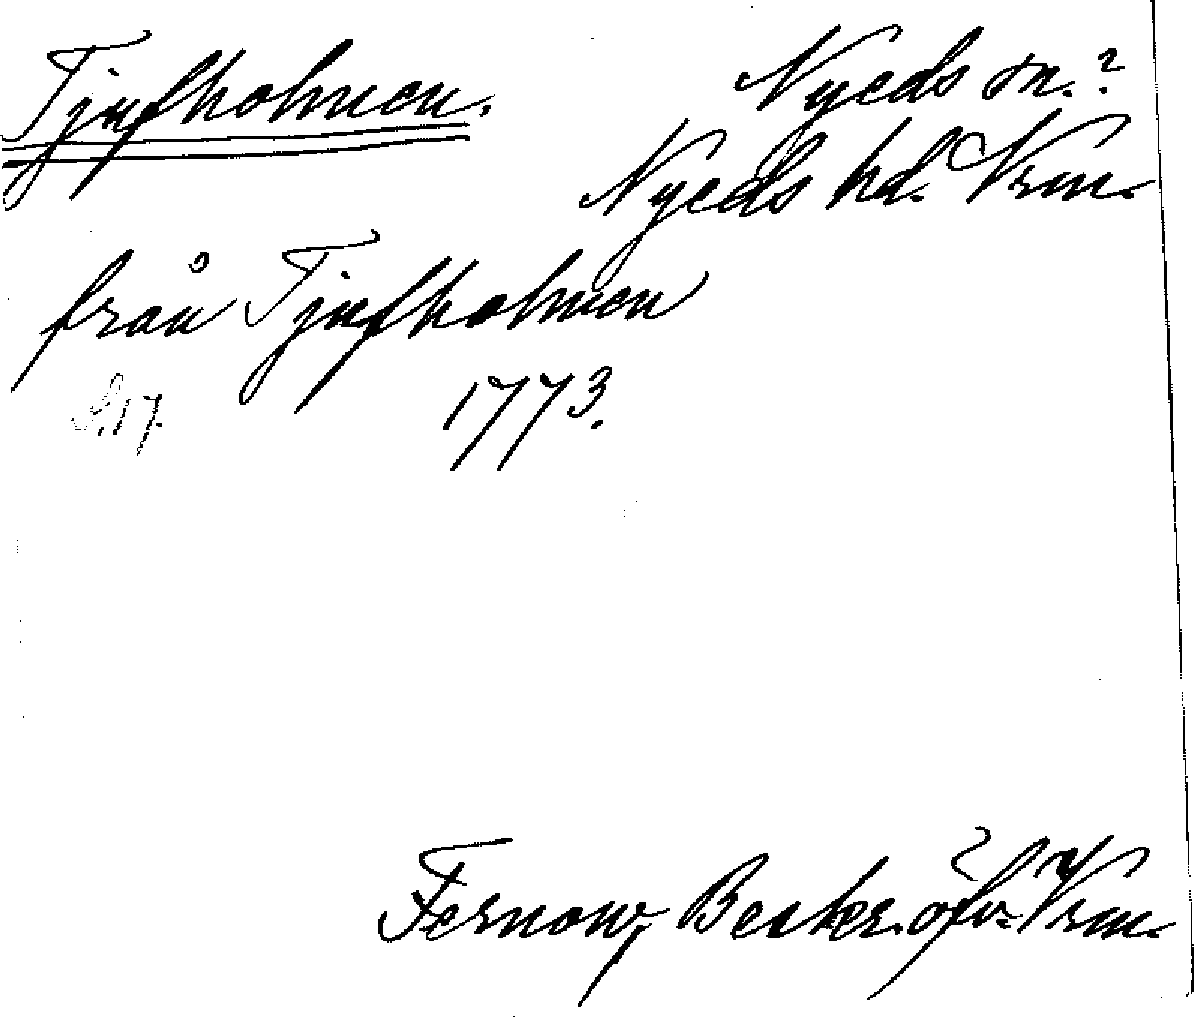 Tjufholmen.
Nyeds sn.?
Nyeds hd. Vrm.
från Tjufholmen
S. 17. 1773.
Fernow, Beskr. öfv. Vrm.